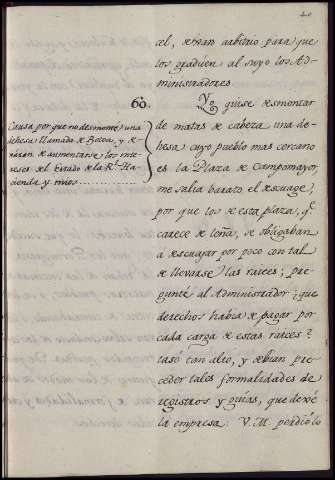 40
cel, dexan arbitrio para que
los gradúen al suyo los Ad-
ministradores.
60.
Causa por que no desmonté una
dehesa llamada de Botoa, y de-
xaron de aumentarse los inte-
reses del Estado de la Rl. Ha-
cienda y mios
Yo quise desmontar
de matas de cabeza una de-
hesa cuyo pueblo mas cercano
es la Plaza de Campomayor,
me salia barato el descuage,
por que los de esta plaza, qe.
carece de leña, se obligaban
a descuajar por poco con tal
de llevarse las raices; pre-
gunté al Administrador ¿que
derechos habia de pagar por
cada carga de estas raices?
tasó tan alto, y debian pre-
ceder tales formalidades de
registros y guias, que dexé
la empresa: V. M. perdió lo